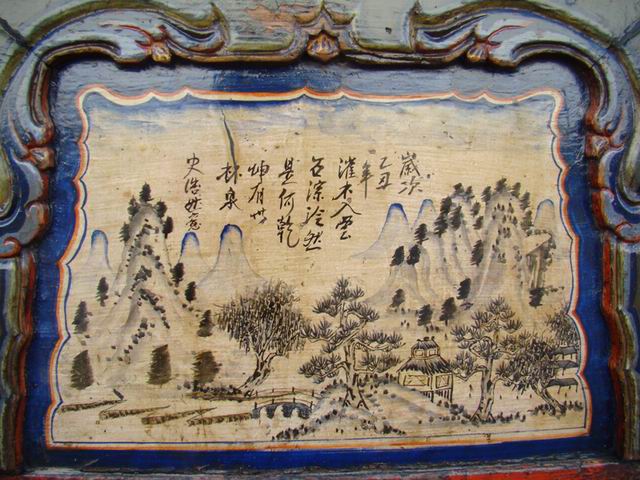 歲次
乙丑
年
灌木入雲
石淙泠然
是何乾
坤有此
林泉
史浩 寫